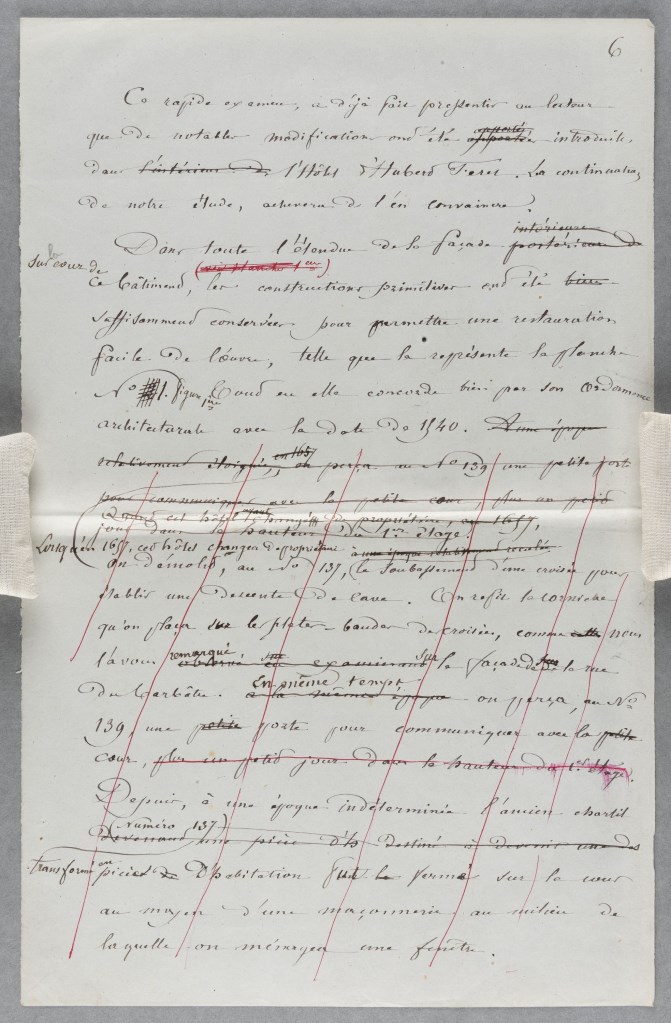 6
Ce rapide examen, a déjà fait pressentir au lecteur
que de notables modifications ont été apportées introduites
dans l'intérieur de l'Hôtel d'Hubert Feret. La continuation
de notre étude, achevera de l'en convaincre.
intérieure
Dans toute l'étendue de la façade postérieure de
sur la cour de (voir planche 1ère)
ce bâtiment, les constructions primitives ont été bien
suffisamment conservées pour permettre une restauration
facile de l'œuvre, telle que la représente la planche
No 1. figure 1re tout en elle concorde bien par son ordonnance
architecturale avec la date de 1540. A une époque
relativement éloignée, en 165 on perça au No 139 une petite porte
pour communiquer avec la petite cour plus un petit
Quand cet hôtel changea de propriétaire, en 1657,
jour dans la hauteur du 1er étage.
Lorsqu'en 1657, cet hôtel changea de propriétaire à une époque
on démolit, au No 137, le soubassement d'une croisée pour
établir une descente de cave. On refit la corniche
qu'on plaça sur les plates-bandes de croisées, comme cette nous
l'avons remarqué observé en examinant sur la façade de la rue
En même temps
du Carbôtu. à la même époque on perça, au No
139, une petite porte pour communiquer avec la petite
cour, plus un petit jour dans la hauteur du 1er étage.
Depuis, à une époque indéterminée l'ancien chartil
(Numéro 137)
devenant une pièce d'h destiné à devenir une des
transformé en pièces de d'habitation fut le fermé sur la cour
au moyen d'une maçonnerie au milieu de
laquelle on ménagea une fenêtre.